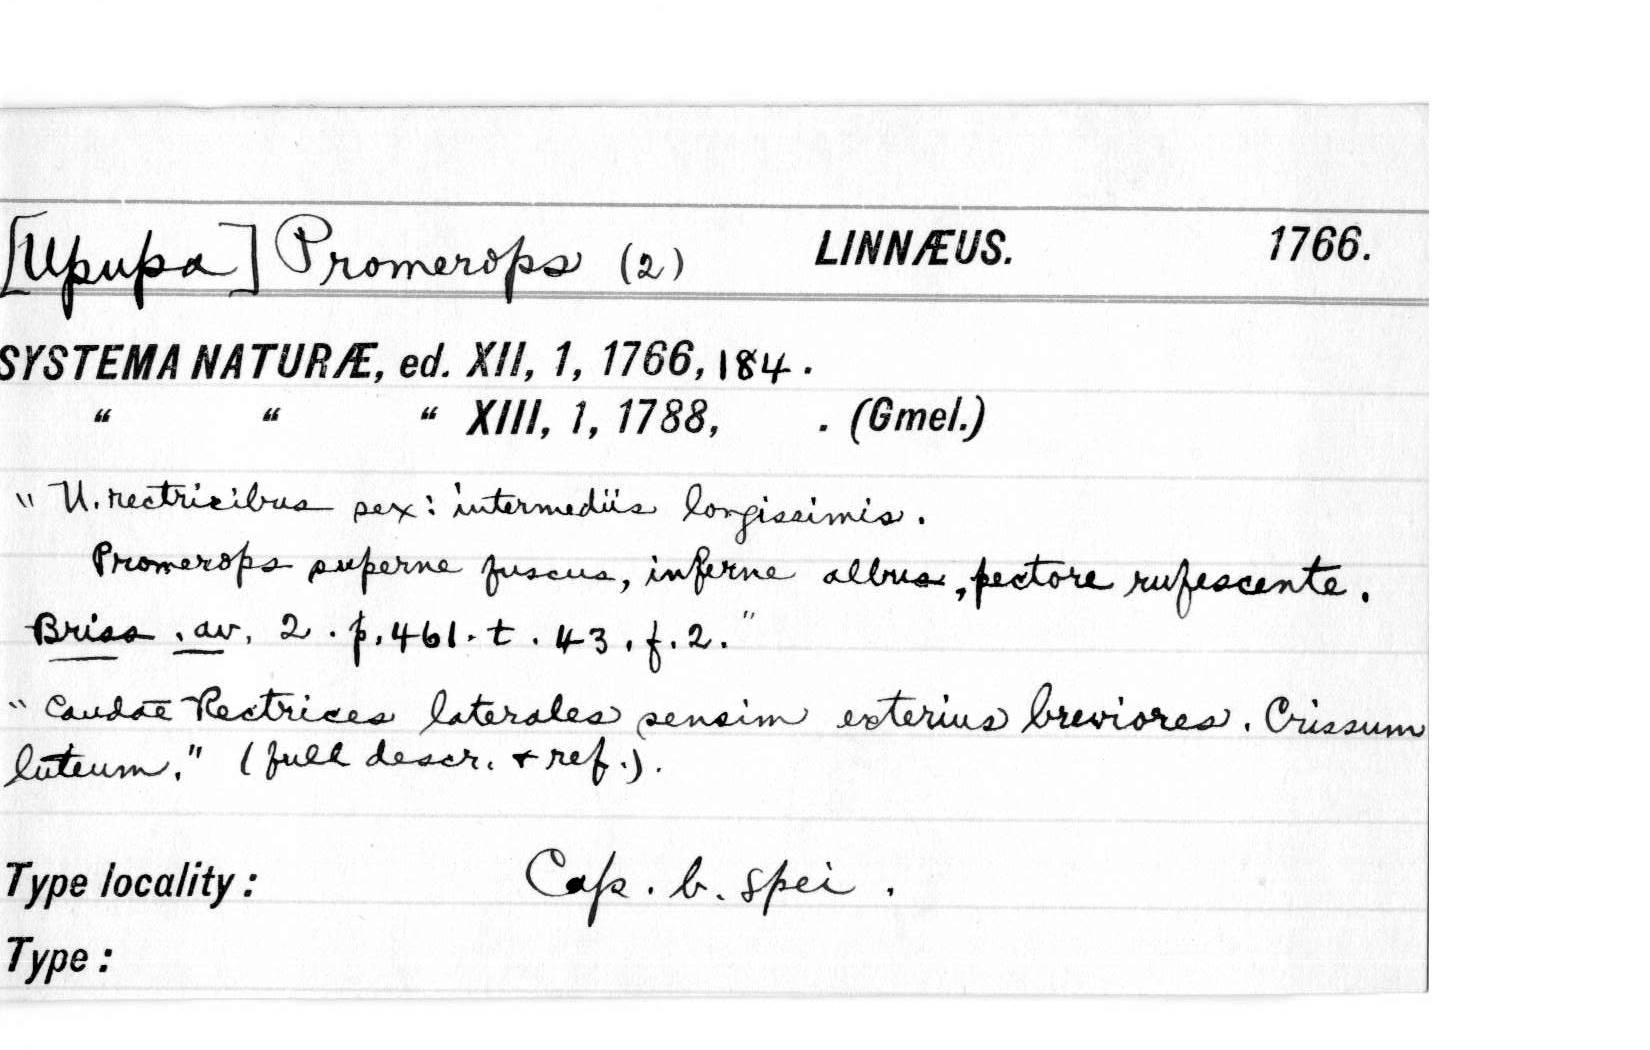 [Upupa] Promerops (2) LINNÆUS. 1766.
SYSTEMA NATURÆ, ed. XII, 1, 1766, 184.
“ “ “ XIII, 1, 1788, . (Gmel.)
"U. rectricibus sex: intermediis longissimis.
Promerops superne fuscus, inferne albus, pectore rufescente.
Briss. av. 2. p. 461. t. 43. f. 2."
"Caudae Rectrices laterales sensim exterius breviores. Crissum
luteum." (full descr. + ref.).
Type locality: Cap. b. spei.
Type: